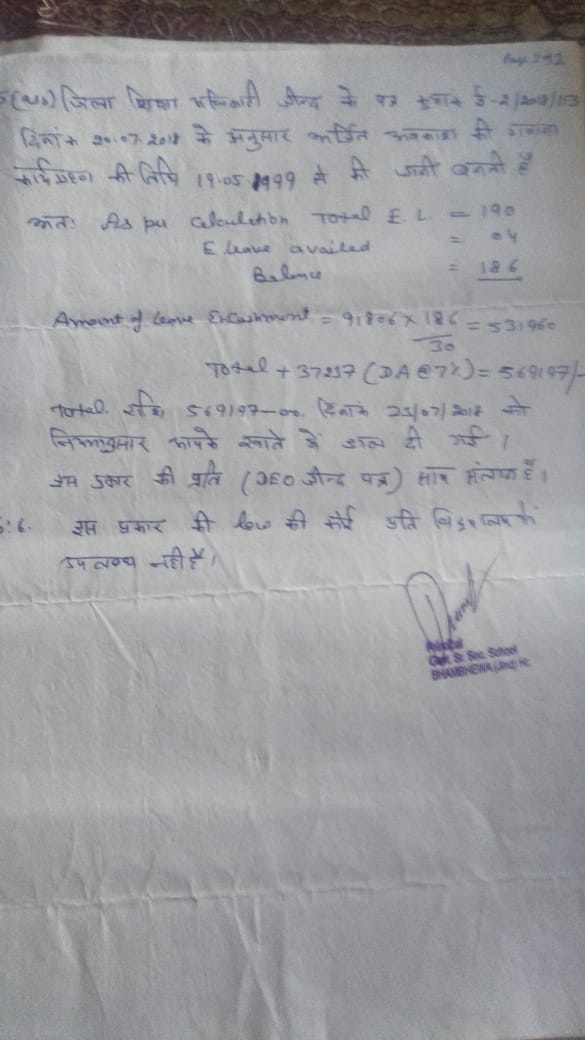 Page 2
जिला शिक्षा अधिकारी जीन्द के पत्र क्रमांक ई-2/2018/
दिनांक 20.07.2018 के अनुसार अर्जित अवकाश की गणना
कार्यग्रहण की तिथि 19.05.1999 से की जानी बनती है
अतः As per Calculation Total E.L. = 190
E. leave availed = 04
Balance = 186
Amount of Leave Encashment = 91806 × 186 = 531960
30
Total + 37237 (DA@7%) = 569197/-
Total राशि 569197-00 दिनांक 23/07/2018 को
निम्नानुसार आपके खाते में डाल दी गई।
इस प्रकार की प्रति (DEO जीन्द पत्र) साथ संलग्न है।
6. इस प्रकार की law की कोई प्रति विद्यालय में
उपलब्ध नही है।
Principal
Govt. Sr. Sec. School
BHAMBHEWA (Jind) Hr.